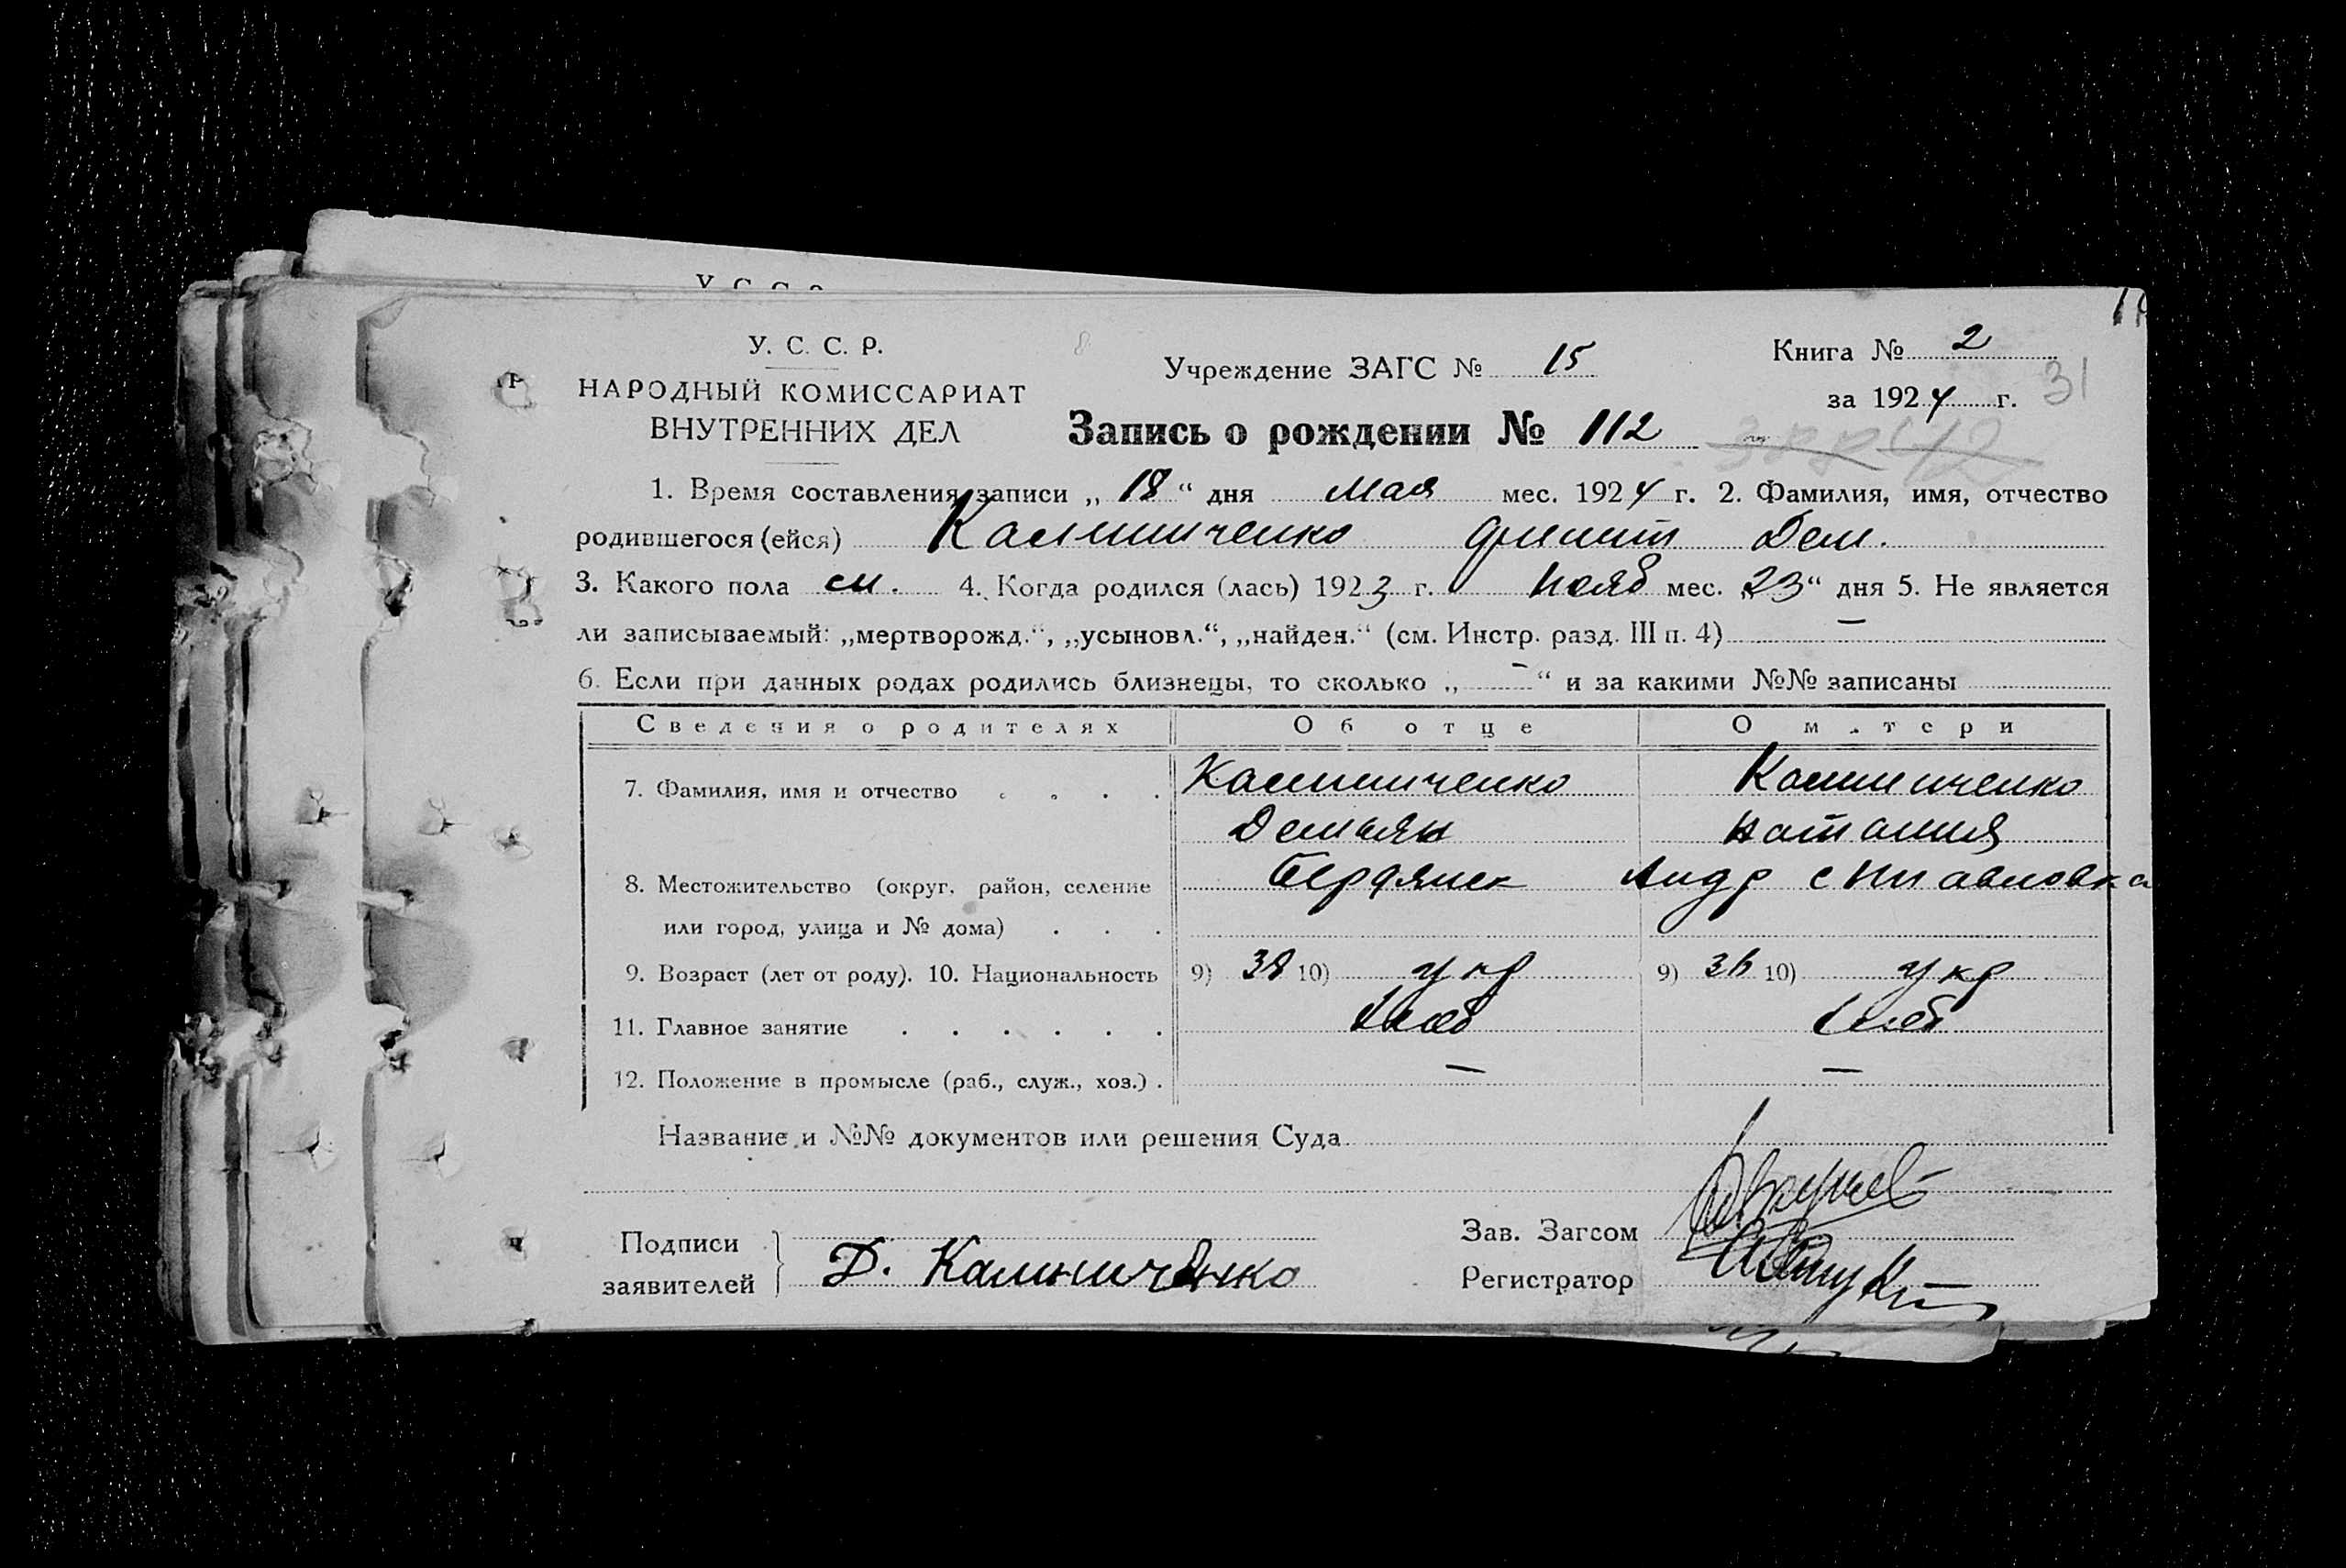 У. С. С. Р.
НАРОДНЫЙ КОМИССАРИАТ
ВНУТРЕННИХ ДЕЛ
Учреждение ЗАГС № 15
Книга № 2
за 1924 г.
31
Запись о рождении № 112
1. Время составления записи „ 18 “ дня мая мес. 1924 г. 2. Фамилия, имя, отчество
родившегося (ейся) Калиниченко Дем.
3. Какого пола м. 4. Когда родился (лась) 1923 г. нояб мес. „23“ дня 5. Не является
ли записываемый: „мертворожд.“, „усыновл.“, „найден.“ (см. Инстр. разд. III п. 4) —
6. Если при данных родах родились близнецы, то сколько „ — “ и за какими №№ записаны
Сведения о родителях Об отце О м.тери
7. Фамилия, имя и отчество . . . . Калиниченко Калиниченко
Демьян Наталия
8. Местожительство (округ, район, селение Бердянск Андр
или город, улица и № дома) . . .
9. Возраст (лет от роду). 10. Национальность 9) 38 10) укр 9) 36 10) укр
11. Главное занятие . . . . . . хлеб хлеб
12. Положение в промысле (раб., служ., хоз.) . — —
Название и №№ документов или решения Суда
Подписи
заявителей Д. Калиниченко
Зав. Загсом
Регистратор